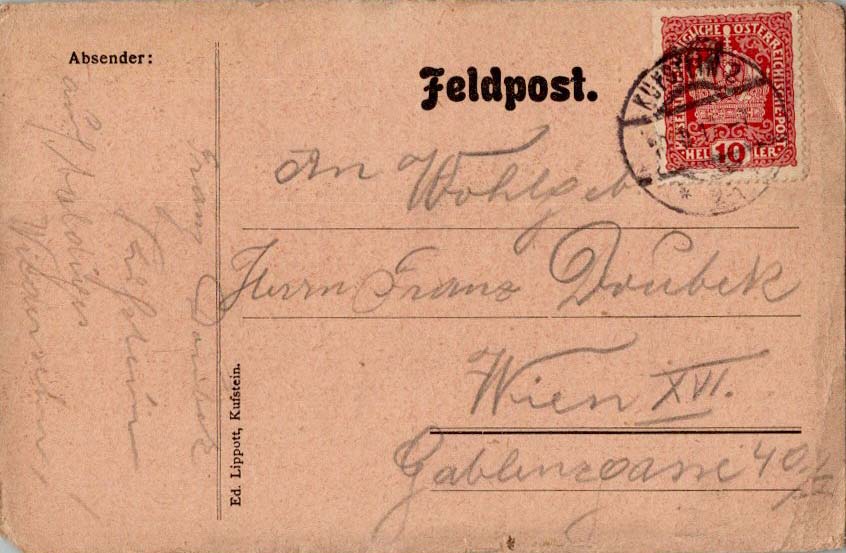 Absender:
Feldpost.
KAISERLICHE KÖNIGLICHE ÖSTERREICHISCHE POST
10
HELLER
KUFSTEIN 2
An Wohlgeb
Herrn Franz Doubek
Wien XVI.
Gablenzgasse 40
Franz Doubek
Kufstein
auf baldiges
Wiedersehen!
Ed. Lippott, Kufstein.